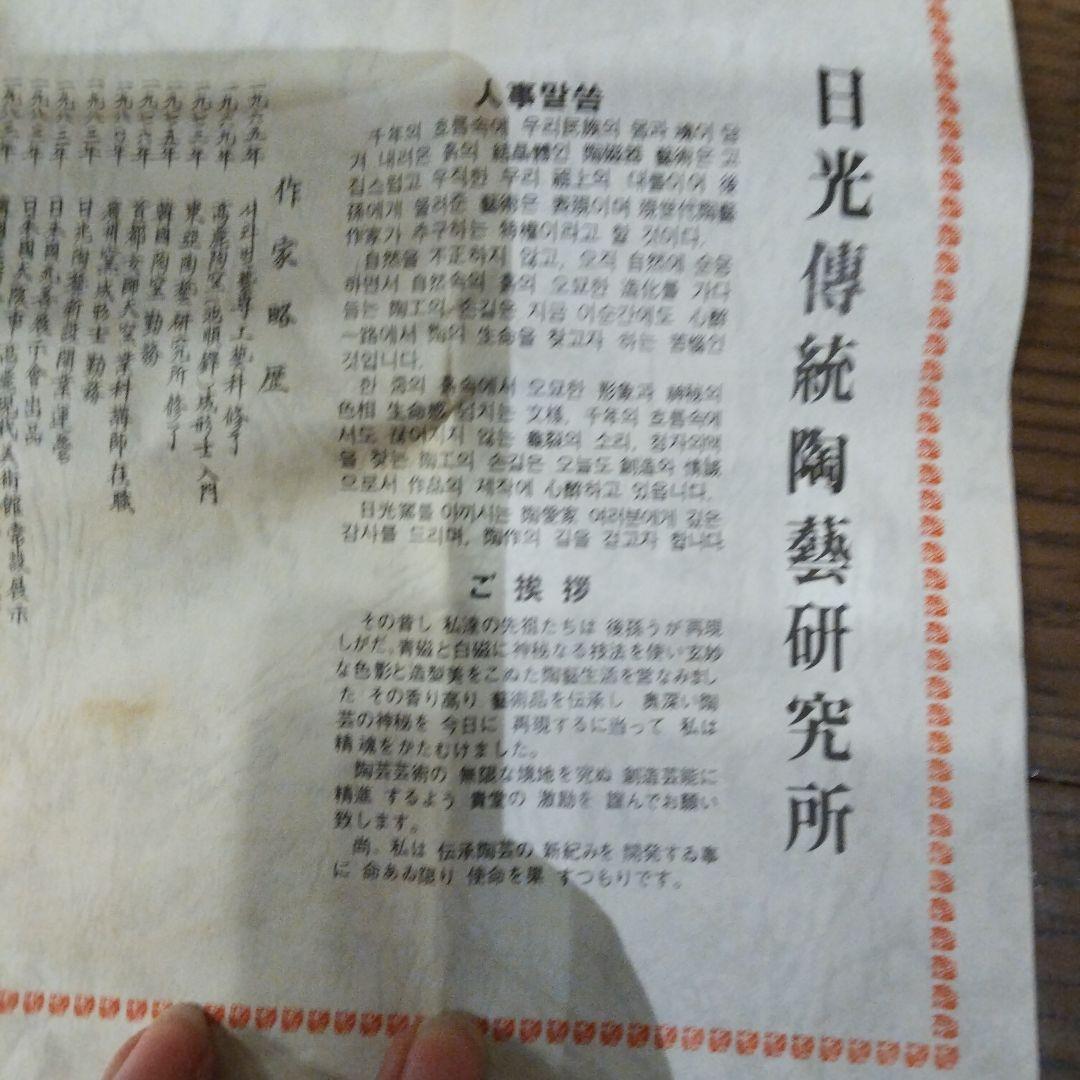 日光傳統陶藝研究所
人事말씀
千年의 흐름속에 우리民族의 얼과 魂이 담
겨 내려온 흙의 結晶體인 陶磁器 藝術은 고
집스럽고 우직한 우리 祖上의 대물이어 後
孫에게 물려준 藝術은 表現이며 現世代陶藝
作家가 추구하는 特權이라고 할 것이다.
自然을 不正하지 않고, 오직 自然에 순응
하면서 自然속의 흙의 오묘한 造化를 가다
듬는 陶工의 손길은 지금 이순간에도 心醉
一路에서 陶의 生命을 찾고자 하는 苦惱인
것입니다.
한 줌의 흙속에서 오묘한 形象과 神秘의
色相 生命感 넘치는 文樣, 千年의 흐름속에
서도 끊어지지 않는 龜裂의 소리, 청자의
을 찾는 陶工의 손길은 오늘도 創造와 情誠
으로서 作品의 제작에 心醉하고 있읍니다.
日光窯를 아끼시는 陶愛家 여러분에게 깊은
감사를 드리며, 陶作의 길을 걷고자 합니다.
ご挨拶
その昔し 私達の先祖たちは 後孫うが再現
しがだ、青磁と白磁に神秘なる技法を使い玄妙
な色影と造型美をこぬた陶藝生活を営なみまし
た その香り高り 藝術品を伝承し 奥深い陶
芸の神秘を 今日に 再現するに当って 私は
精魂をかたむけました。
陶芸芸術の 無限な境地を究ぬ 創造芸能に
精進 するよう 貴堂の 激励を 謹んでお願い
致します。
尚、私は 伝承陶芸の 新紀みを 開発する事
に 命あゐ限り 使命を果 すつもりです。
作家略歴
一九六五年 서라벌藝專工藝科修了
一九六九年 高麗陶窯(池順鐸)成形士入門
一九七三年 東亞陶藝研究所修了
一九七五年 韓國陶窯勤務
一九七六年 首都女師大窯業科講師在職
一九八〇年 窯成形士勤務
一九八三年 日光陶藝新設開業運營
一九八三年 日本國 展示會出品
一九八三年 日本國大阪市 現代美術館常設展示